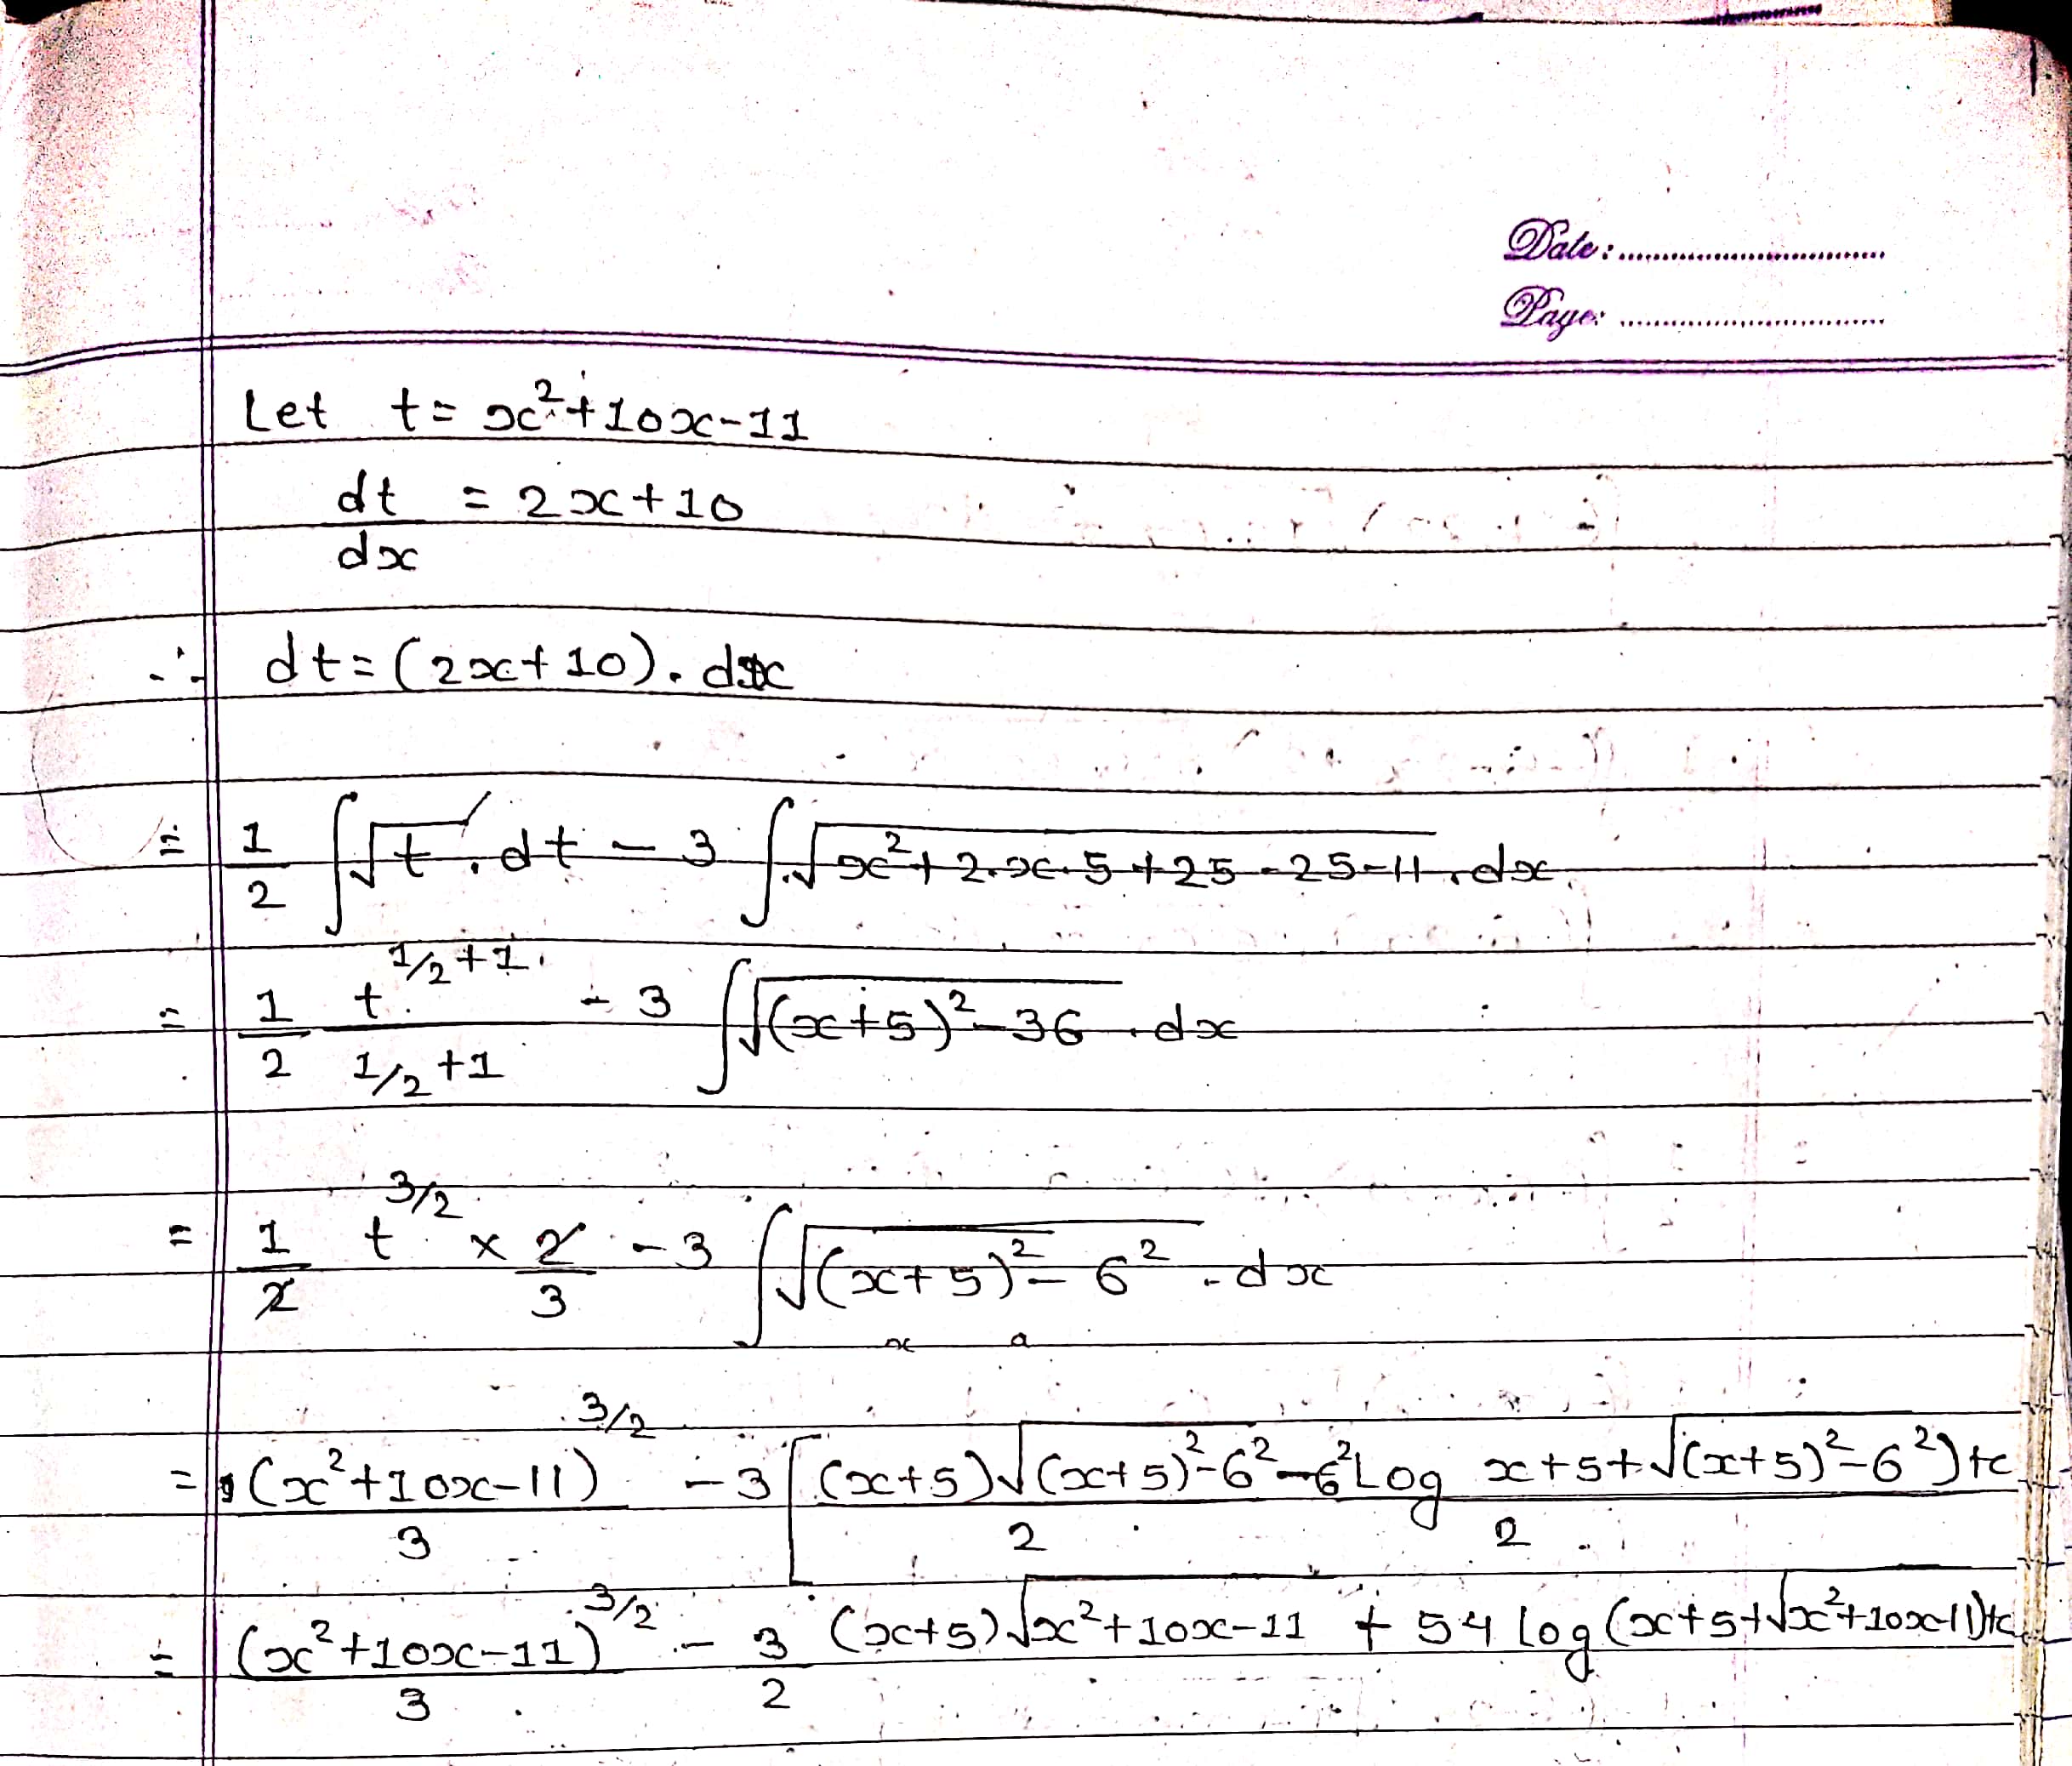 Date: ..............................
Page: ..............................
Let t = x²+10x-11
dt/dx = 2x+10
∴ dt = (2x+10). dx
= 1/2 ∫√t . dt - 3 ∫√x²+2.x.5+25-25-11 . dx
= 1/2 t^(1/2+1) / (1/2+1) - 3 ∫√(x+5)²-36 . dx
= 1/2 t^(3/2) × 2/3 - 3 ∫√(x+5)²-6² . dx
x a
= (x²+10x-11)^(3/2) / 3 - 3 [ (x+5)√(x+5)²-6² / 2 - 6² Log x+5+√(x+5)²-6²) / 2 +c
= (x²+10x-11)^(3/2) / 3 - 3/2 (x+5)√x²+10x-11 + 54 log(x+5+√x²+10x-11)+c